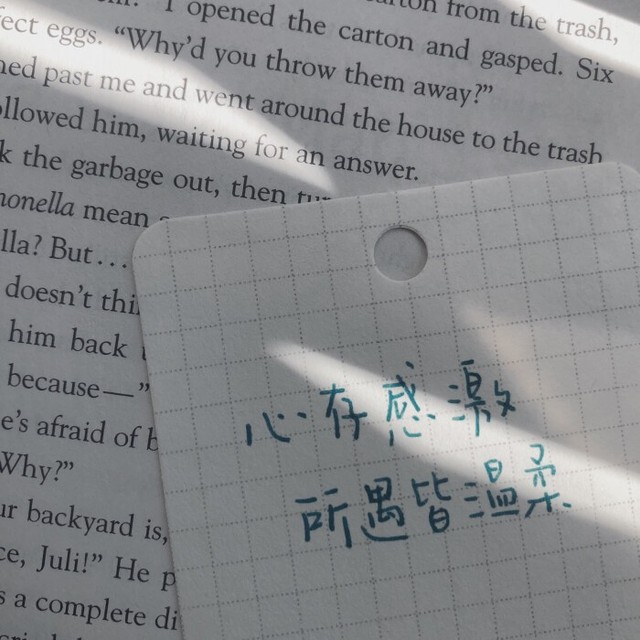 I opened the carton and gasped. Six
fect eggs. “Why’d you throw them away?”
past me and went around the house to the trash
him, waiting for an answer.
k the garbage out, then
monella mean
lla? But…
doesn’t thi
him back
because—”
e’s afraid of b
Why?”
ur backyard is,
ce, Juli!” He p
s a complete di
carton from the trash,
心存感激
所遇皆温柔.